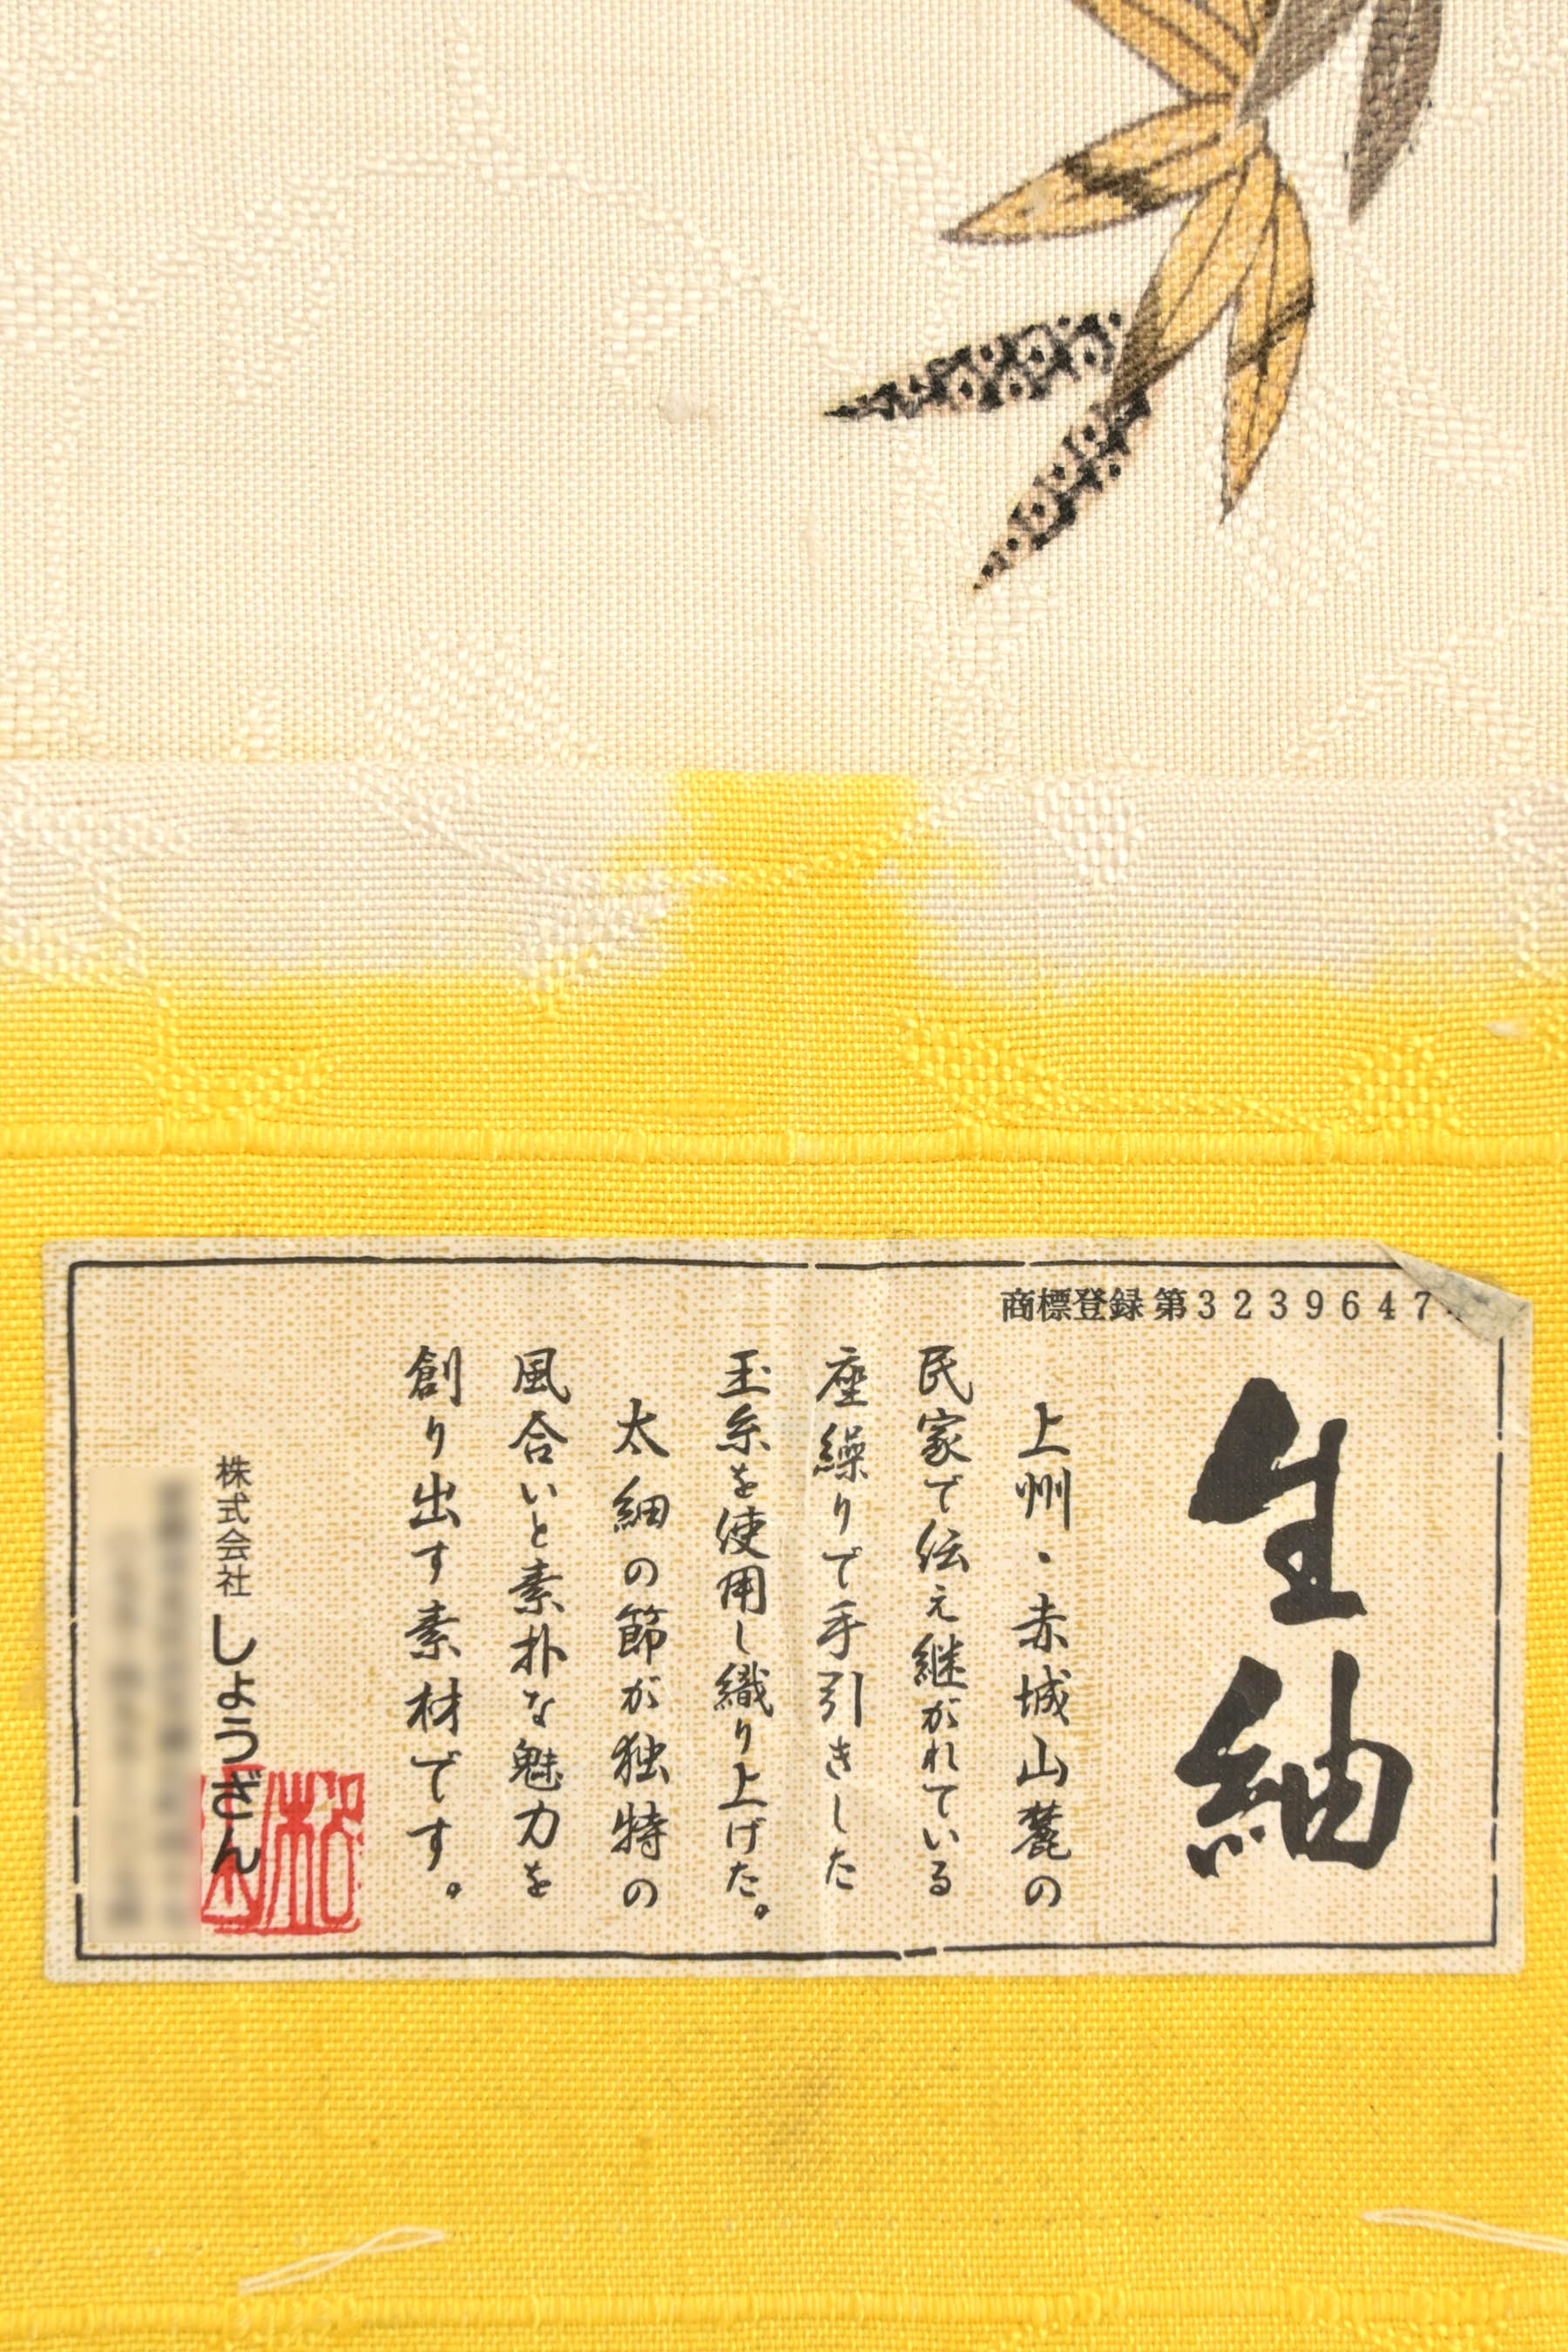 商標登録 第3239647
生紬
上州・赤城山麓の
民家で伝え継がれている
座繰りで手引きした
玉糸を使用し織り上げた。
太細の節が独特の
風合いと素朴な魅力を
創り出す素材です。
株式会社 しょうざん